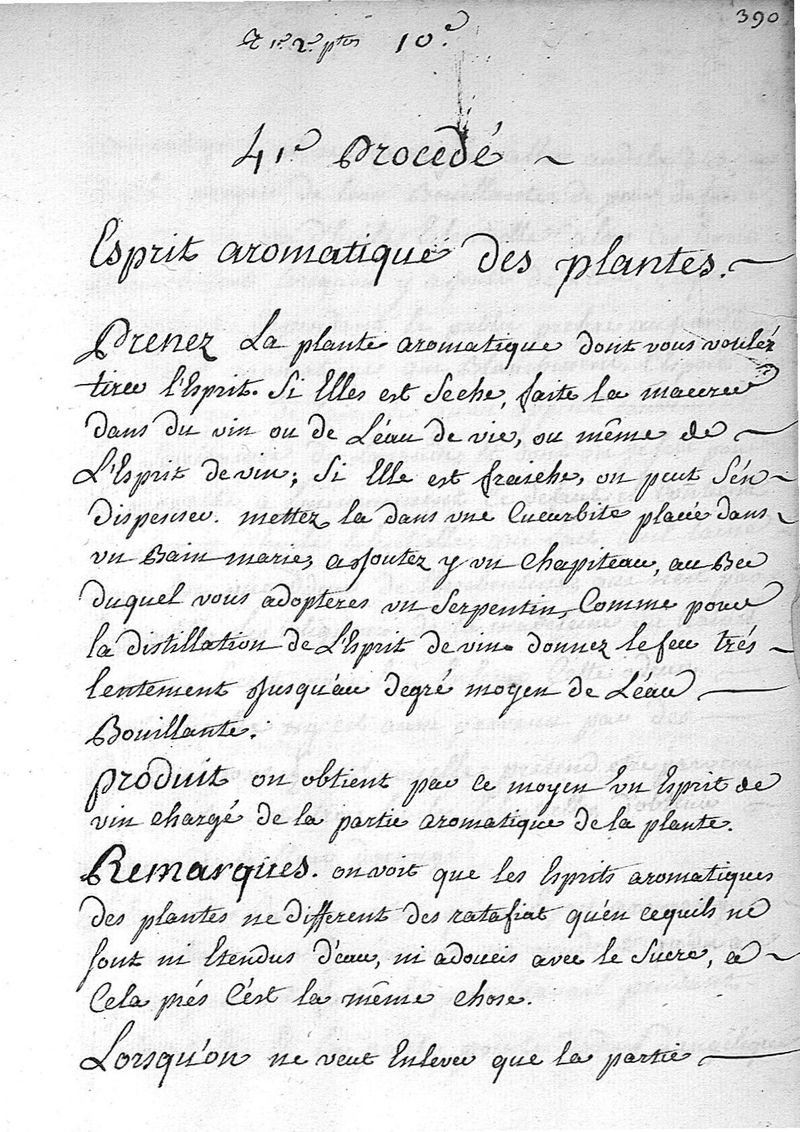 390
1re 2e ptes 10e
41e Procedé ~
Esprit aromatique des plantes. ~
Prenez La plante aromatique dont vous voulez
tirer l'Esprit. Si Elles est Seche, faite la macerer
dans du vin ou de L'éau de vie, ou même de ~
L'Esprit de vin; Si Elle est fraiche, on peut S'én ~
dispenser. mettez la dans une Cucurbite placée dans ~
un Bain marie, ajoutez y un Chapiteau, au Bec
duquel vous adopteres un Serpentin, Comme pour
la distillation de L'Esprit de vin. donnez le feu trés ~
lentement Jusqu'au degré moyen de L'éau ~
Bouillante.
produit on obtient par ce moyen Un Esprit de
vin chargé de la partie aromatique de la plante.
Remarques. on voit que les Esprits aromatiques
des plantes ne different des ratafiat qu'en ce quils ne
sont ni Etendus d'eau, ni adoucis avec le Sucre, a ~
Cela prés C'est la même chose.
Lorsqu'on ne veut Enlever que la partie ~